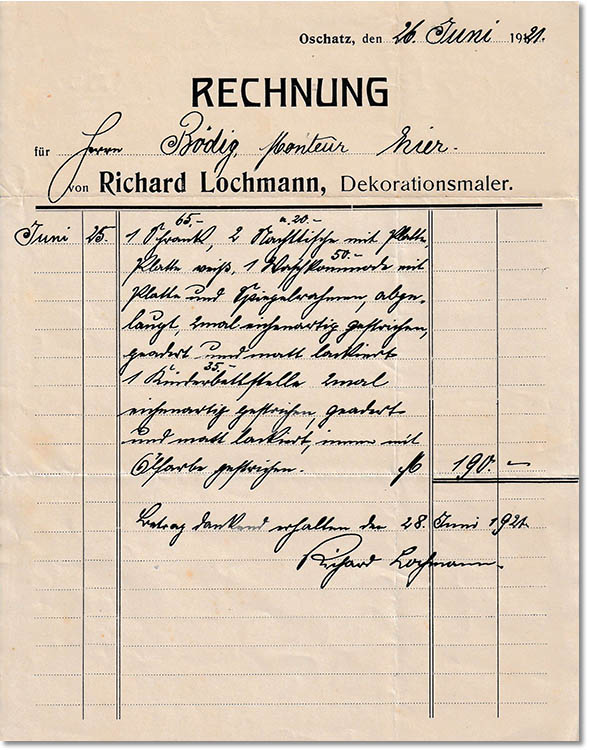 Oschatz, den 26. Juni 1921.
RECHNUNG
für Herrn Bödig, Monteur hier.
von Richard Lochmann, Dekorationsmaler.
65,- a. 20.-
Juni 25. 1 Schrank, 2 Nachttische mit Platte
50.-
Platte weiß, 1 Waschkommode mit
Platte und Spiegelrahmen, abge-
laugt, 2mal eichenartig gestrichen,
geadert und matt lackiert
35,-
1 Kinderbettstelle 2mal
eichenartig gestrichen, geadert
und matt lackiert, innen mit
Ölfarbe gestrichen. M 190.-
Betrag dankend erhalten den 28. Juni 1921.
Richard Lochmann.